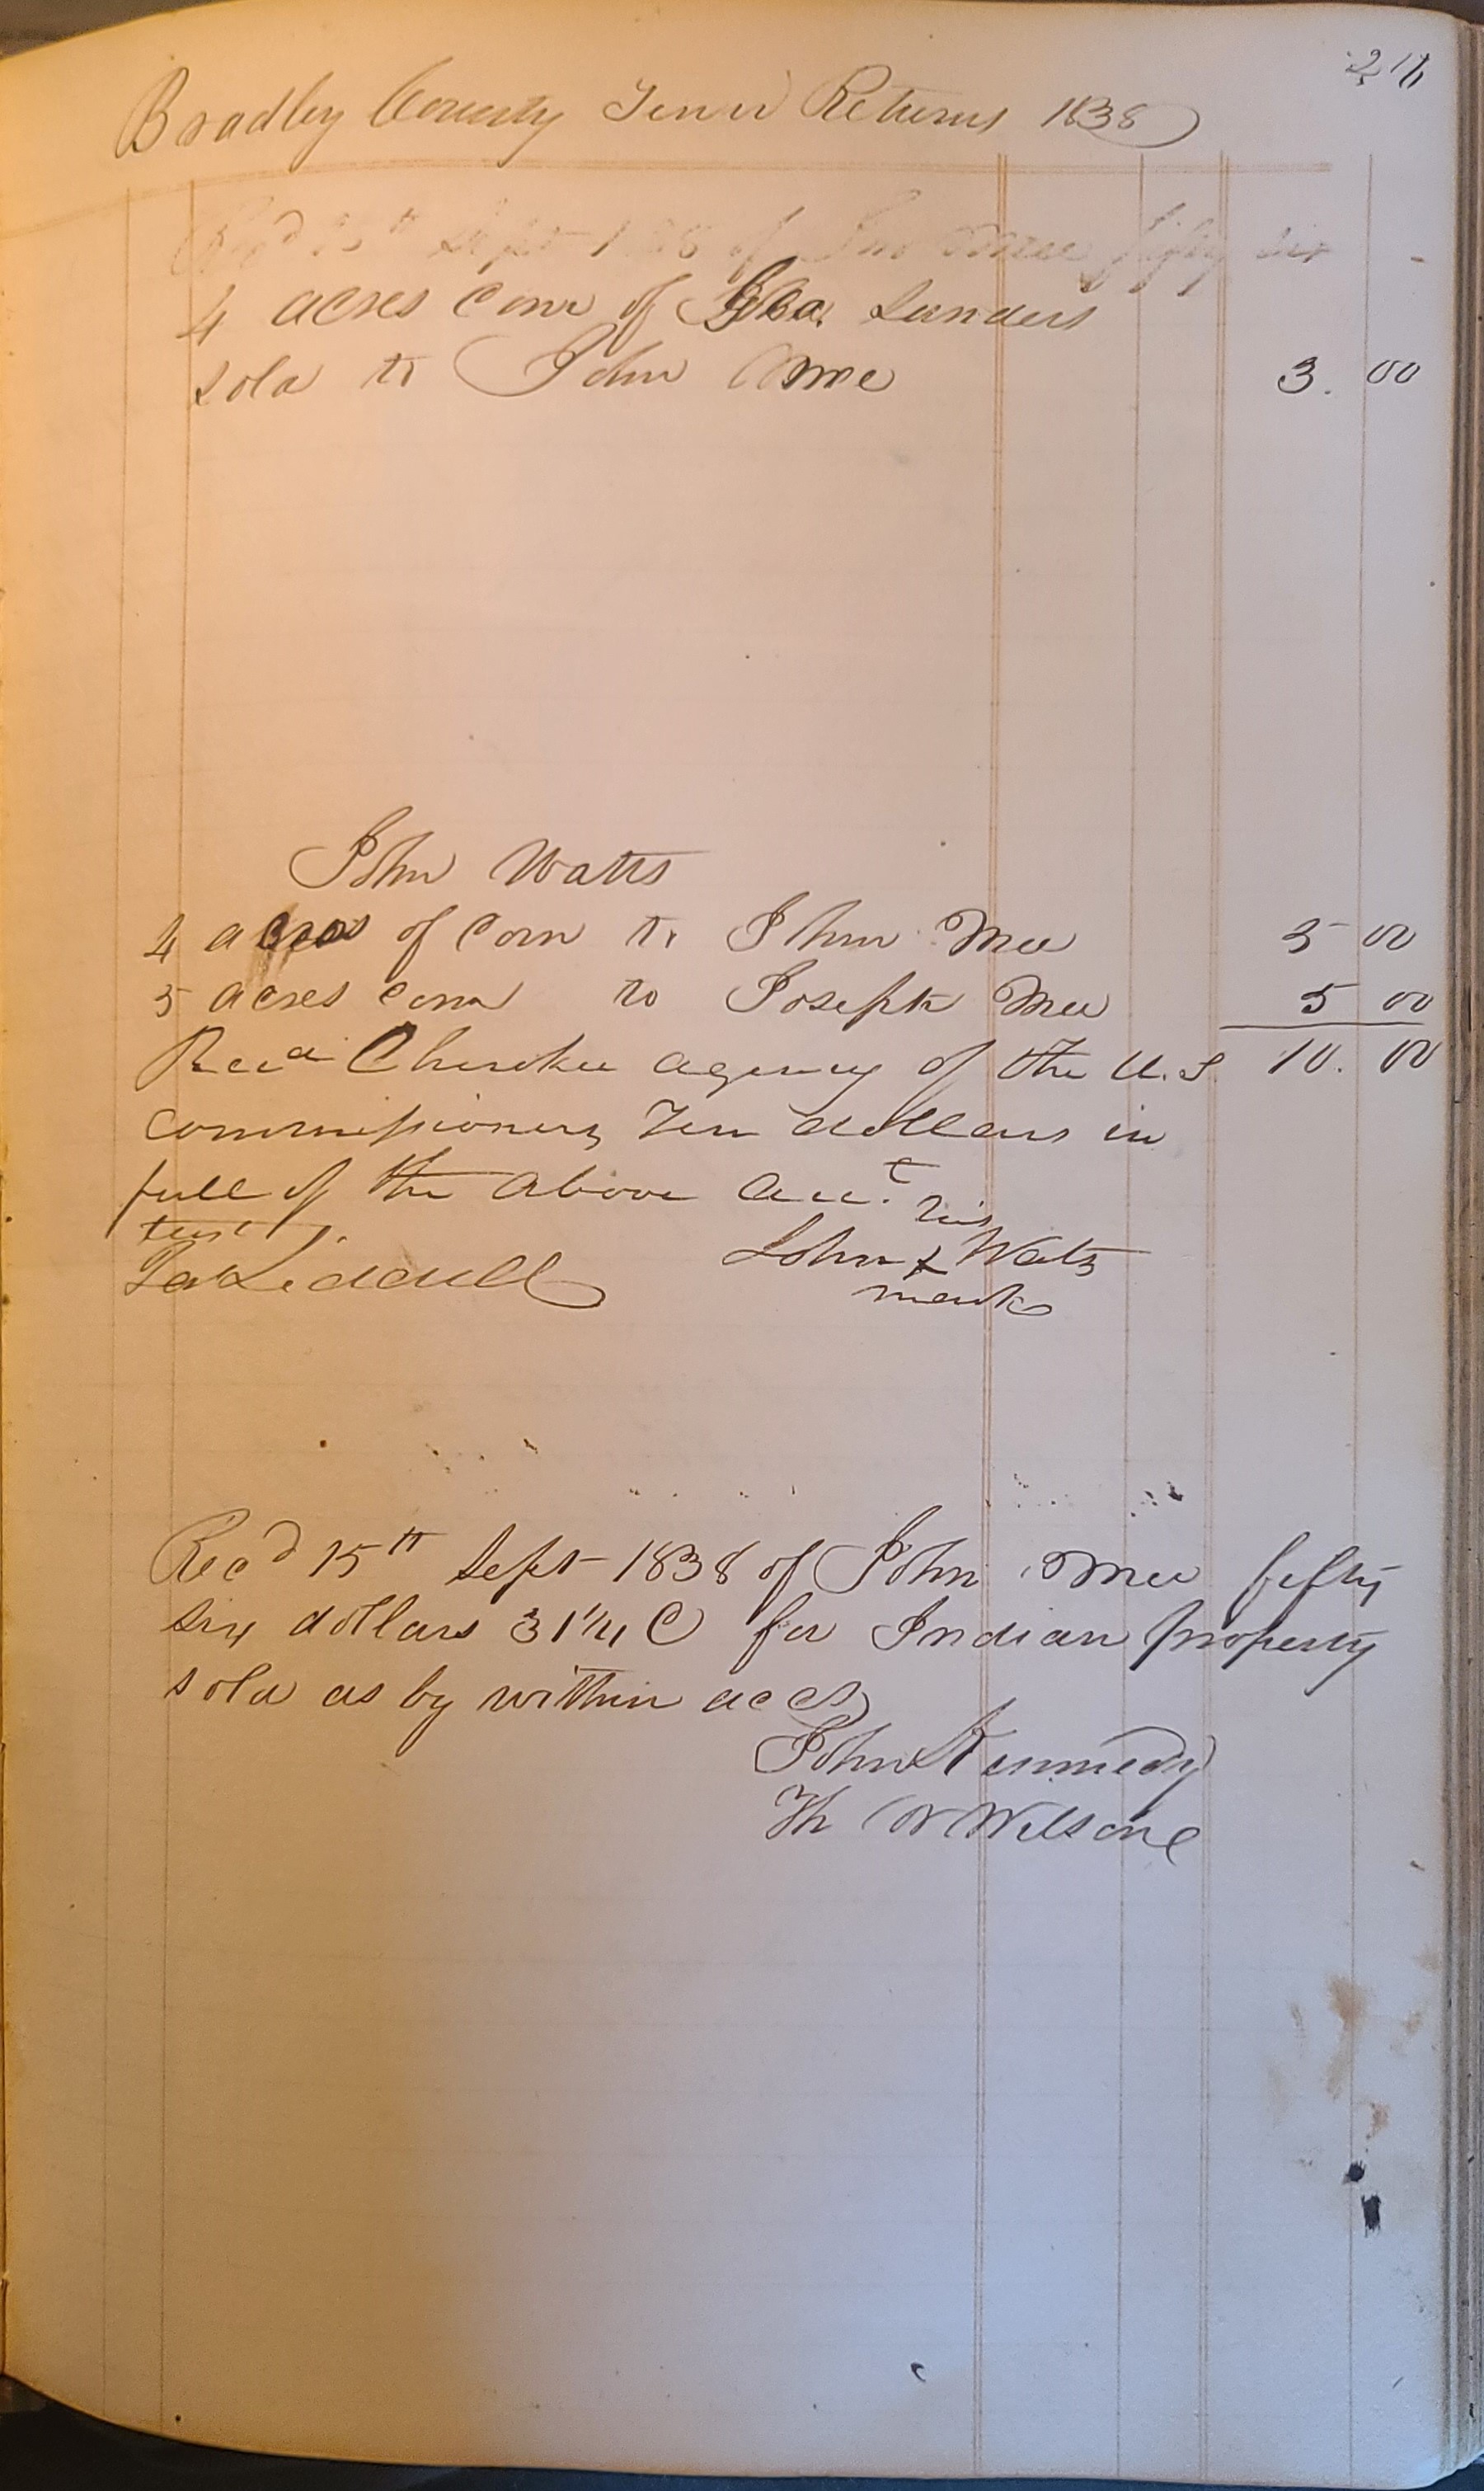 216
Bradley County Tenn Returns 1838
Rec'd 15th Sept 1838 of Jno Mee fifty six
4 acres corn of Geo. Sanders
sold to John Mee 3. 00
John Watts
4 acres of corn to John Mee 5 00
5 acres corn to Joseph Mee 5 00
Recd Cherokee agency of the U.S. 10. 00
Commissioners Ten dollars in
full of the above acct.
test his
John x Watts
mark
Recd 15th Sept 1838 of John Mee fifty
six dollars 31 1/4 C for Indian property
sold as by within accts
John Kennedy
Th W Wilson